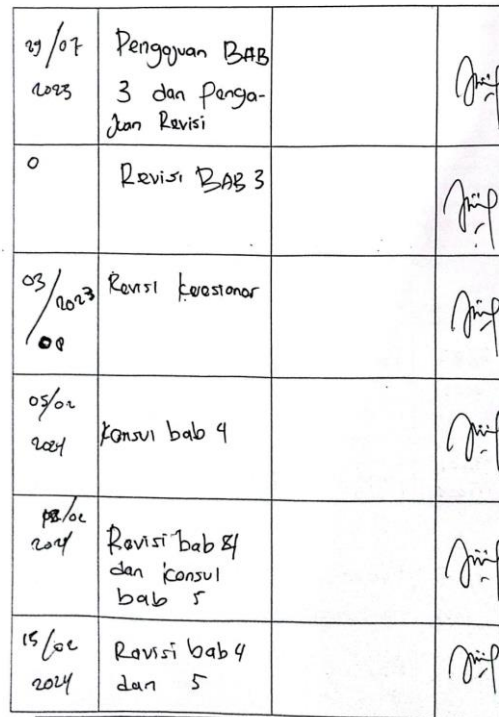 29/07
2023
Pengajuan BAB
3 dan Penga-
Juan Revisi
0
Revisi BAB 3
03/2023
Revisi
05/02
2024
Konsul bab 4
/02
2024
Revisi bab 4
dan Konsul
bab 5
15/02
2024
Revisi bab 4
dan 5